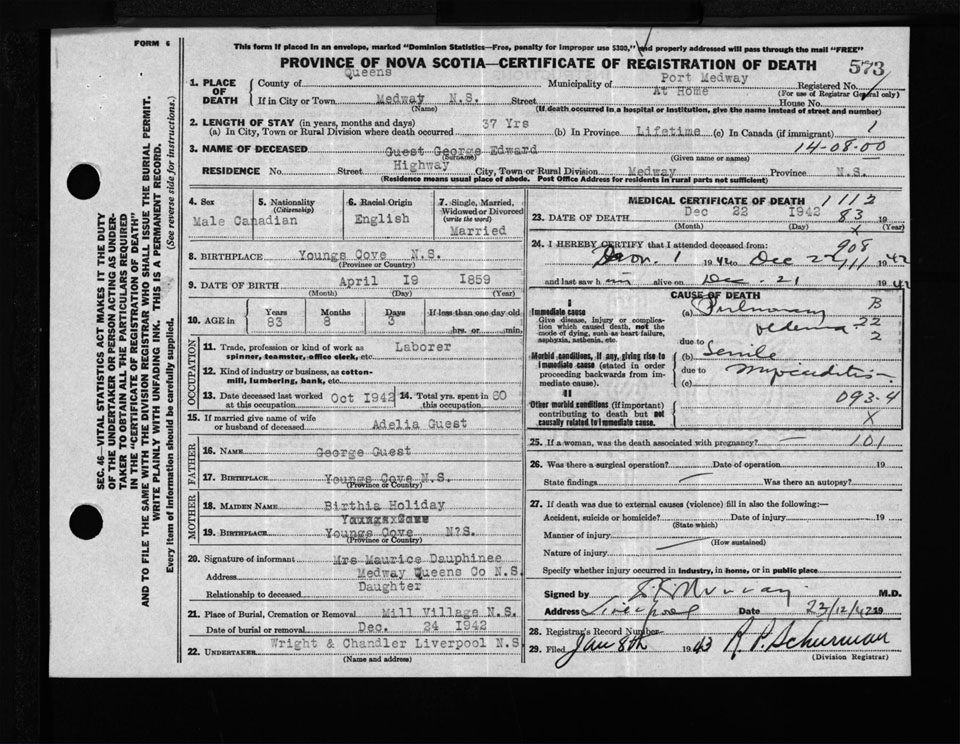 FORM 6
This form if placed in an envelope, marked "Dominion Statistics—Free, penalty for improper use $300," and properly addressed will pass through the mail "FREE"
PROVINCE OF NOVA SCOTIA—CERTIFICATE OF REGISTRATION OF DEATH
573
SEC. 46—VITAL STATISTICS ACT MAKES IT THE DUTY
OF THE UNDERTAKER OR PERSON ACTING AS UNDER-
TAKER TO OBTAIN ALL THE PARTICULARS REQUIRED
IN THE "CERTIFICATE OF REGISTRATION OF DEATH"
AND TO FILE THE SAME WITH THE DIVISION REGISTRAR WHO SHALL ISSUE THE BURIAL PERMIT.
WRITE PLAINLY WITH UNFADING INK. THIS IS A PERMANENT RECORD.
Every item of information should be carefully supplied. (See reverse side for instructions.)
1. PLACE OF DEATH
County of Queens Municipality of Port Medway Registered No.
(For use of Registrar General only)
If in City or Town Medway N.S. Street At Home House No.
(Name) (If death occurred in a hospital or institution, give the name instead of street and number)
2. LENGTH OF STAY (in years, months and days)
(a) In City, Town or Rural Division where death occurred 37 Yrs (b) In Province Lifetime (c) In Canada (if immigrant) 1
3. NAME OF DECEASED Guest George Edward 14-08-00
(Surname) (Given name or names)
RESIDENCE No. Street Highway City, Town or Rural Division Medway Province N.S.
(Residence means usual place of abode. Post Office Address for residents in rural parts not sufficient)
4. Sex
Male
5. Nationality
(Citizenship)
Canadian
6. Racial Origin
English
7. Single, Married,
Widowed or Divorced
(write the word)
Married
8. BIRTHPLACE Youngs Cove N.S.
(Province or Country)
9. DATE OF BIRTH April 19 1859
(Month) (Day) (Year)
10. AGE in
Years Months Days If less than one day old
83 8 3 hrs. or min.
OCCUPATION
11. Trade, profession or kind of work as Laborer
spinner, teamster, office clerk, etc.
12. Kind of industry or business, as cotton-
mill, lumbering, bank, etc.
13. Date deceased last worked at this occupation Oct 1942
14. Total yrs. spent in this occupation 60
15. If married give name of wife
or husband of deceased Adelia Guest
FATHER
16. NAME George Guest
17. BIRTHPLACE Youngs Cove N.S.
(Province or Country)
MOTHER
18. MAIDEN NAME Birthia Holiday
19. BIRTHPLACE Youngs Cove N?S.
(Province or Country)
20. Signature of informant Mrs Maurice Dauphinee
Address Medway Queens Co N.S.
Relationship to deceased Daughter
21. Place of Burial, Cremation or Removal Mill Village N.S.
Date of burial or removal Dec. 24 1942
22. UNDERTAKER Wright & Chandler Liverpool N.S.
(Name and address)
MEDICAL CERTIFICATE OF DEATH 1112
23. DATE OF DEATH Dec 22 1942 83 19
(Month) (Day) x (Year)
24. I HEREBY CERTIFY that I attended deceased from: 908
1 1942 to Dec 22 111 1942
and last saw him alive on Dec. 21 1942
CAUSE OF DEATH
I
Immediate cause
Give disease, injury or complica-
tion which caused death, not the
mode of dying, such as heart failure,
asphyxia, asthenia, etc.
(a) Pulmonary B
oedema 22
2
due to
Morbid conditions, if any, giving rise to
immediate cause (stated in order
proceeding backwards from im-
mediate cause).
(b) Senile
due to myocarditis
(c)
II
Other morbid conditions (if important)
contributing to death but not
causally related to immediate cause.
093.4
X
25. If a woman, was the death associated with pregnancy? 101
26. Was there a surgical operation? Date of operation 19
State findings Was there an autopsy?
27. If death was due to external causes (violence) fill in also the following:—
Accident, suicide or homicide? Date of injury 19
(State which)
Manner of injury
(How sustained)
Nature of injury
Specify whether injury occurred in industry, in home, or in public place
Signed by Murray M.D.
Address Liverpool Date 23/12/42 19
28. Registrar's Record Number
29. Filed Jan 8th 1943 R. P. Schurman
(Division Registrar)